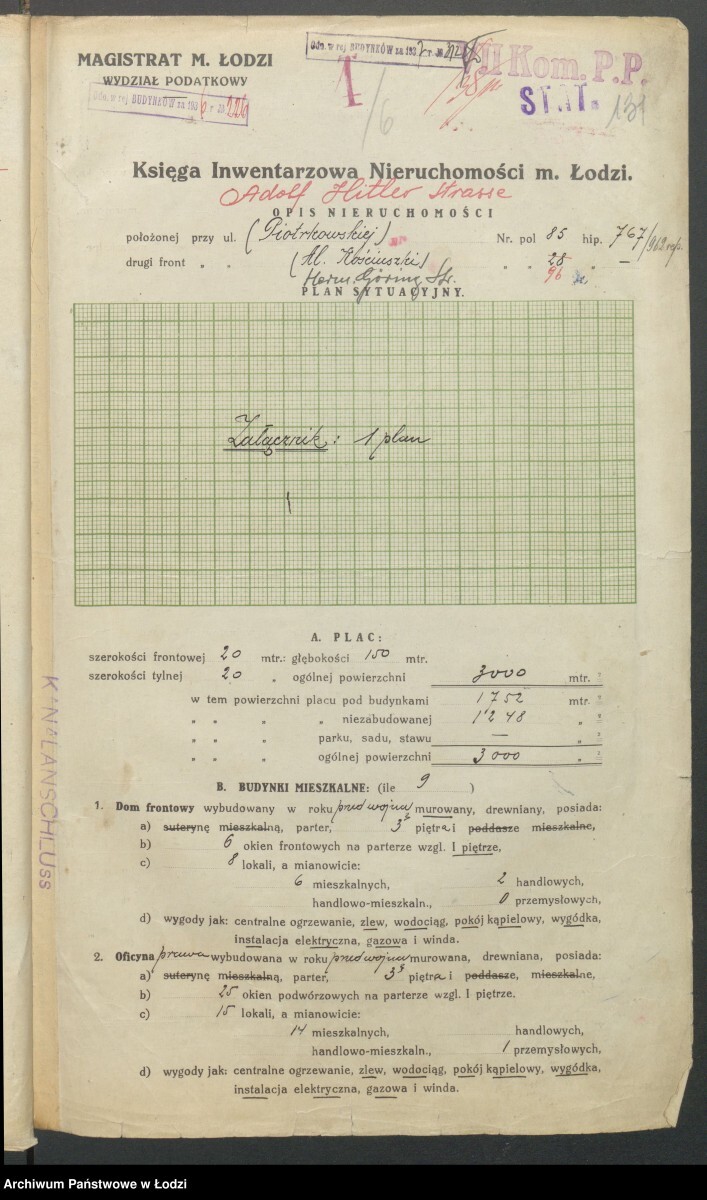 MAGISTRAT M. ŁODZI
WYDZIAŁ PODATKOWY
Odn. w rej BUDYNKÓW za 193
Odn. w rej BUDYNKÓW za 193
1
/6
III Kom. P.P.
STAT.
131
Księga Inwentarzowa Nieruchomości m. Łodzi.
Adolf Hitler Strasse
OPIS NIERUCHOMOŚCI
położonej przy ul. (Piotrkowskiej) Nr. pol 85 hip. 767/962 rep.
drugi front „ „ (Al. Kościuszki) „ „ 28 „ —
Herm. Göring Str. 96
PLAN SYTUACYJNY.
Załącznik: 1 plan
A. PLAC:
szerokości frontowej 20 mtr.: głębokości 150 mtr.
szerokości tylnej 20 „ ogólnej powierzchni 3000 mtr. ²
w tem powierzchni placu pod budynkami 1752 mtr. ²
„ „ „ „ niezabudowanej 1248 „ ²
„ „ „ parku, sadu, stawu — „ ²
„ „ „ ogólnej powierzchni 3000 „ ²
B. BUDYNKI MIESZKALNE: (ile 9 )
1. Dom frontowy wybudowany w roku przed wojną murowany, drewniany, posiada:
a) suterynę mieszkalną, parter, 3 piętra i poddasze mieszkalne,
b) 6 okien frontowych na parterze wzgl. I piętrze,
c) 8 lokali, a mianowicie:
6 mieszkalnych, 2 handlowych,
handlowo-mieszkaln., 0 przemysłowych,
d) wygody jak: centralne ogrzewanie, zlew, wodociąg, pokój kąpielowy, wygódka,
instalacja elektryczna, gazowa i winda.
2. Oficyna prawa wybudowana w roku przed wojną murowana, drewniana, posiada:
a) suterynę mieszkalną, parter, 3 piętra i poddasze, mieszkalne,
b) 25 okien podwórzowych na parterze wzgl. I piętrze.
c) 15 lokali, a mianowicie:
14 mieszkalnych, handlowych,
handlowo-mieszkaln., 1 przemysłowych,
d) wygody jak: centralne ogrzewanie, zlew, wodociąg, pokój kąpielowy, wygódka,
instalacja elektryczna, gazowa i winda.
KANALANSCHLUSS
Archiwum Państwowe w Łodzi